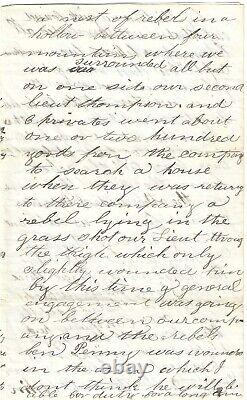 a nest of rebel in a
hollow between four
mountins where we
was surrounded all but
on one side our second
Lieut thompson and
6 privates went about
one or two hundred
yards from the company
to search a house
when they was return
to there company a
rebel lying in the
grass shot our Lieut throu
the thigh which only
slightly wounded him
by this time a general
engagement was going
on between our comp
any and the rebels
ben Penny was wounded
in the which I
dont think he will be
able for duty for a long